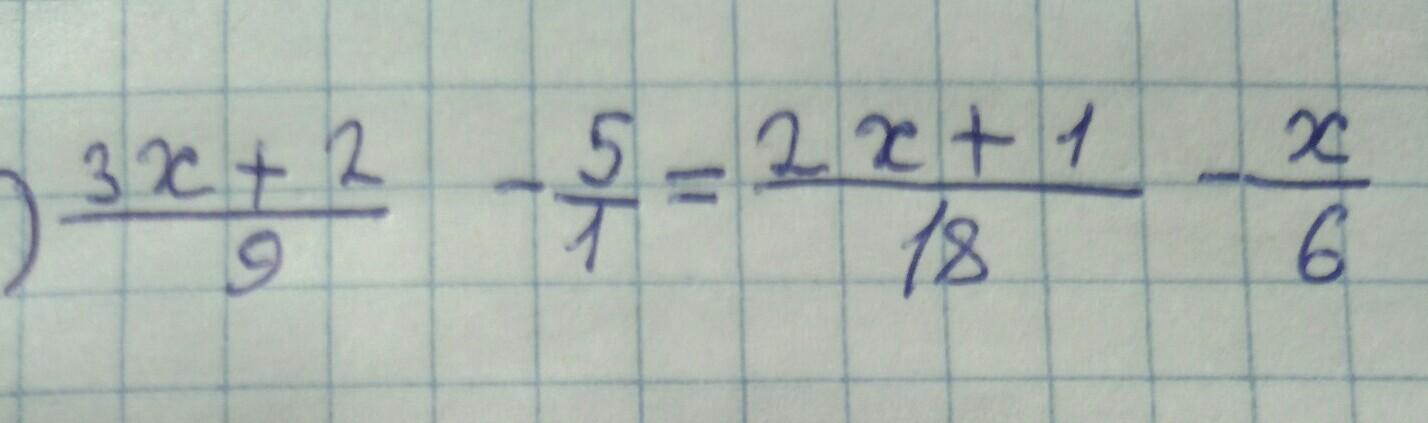 ) (3x + 2)/9 - 5/1 = (2x + 1)/18 - x/6